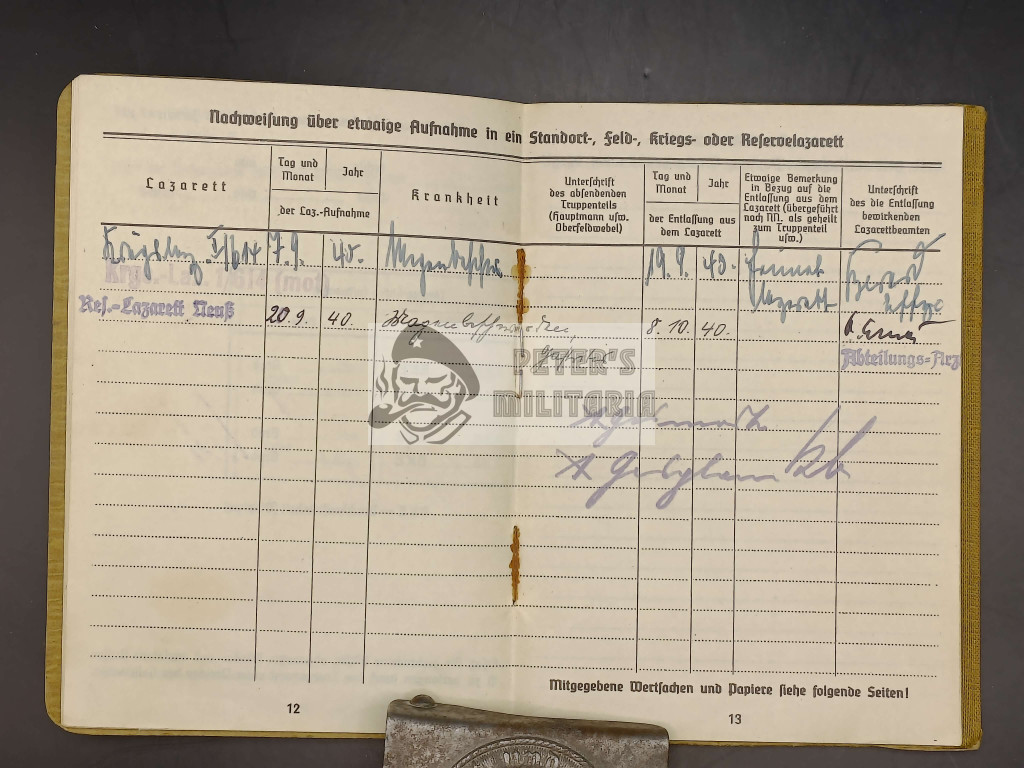 Nachweisung über etwaige Aufnahme in ein Standort-, Feld-, Kriegs- oder Reservelazarett
Lazarett
Tag und Monat
Jahr
der Laz.-Aufnahme
Krankheit
Unterschrift
des absendenden
Truppenteils
(Hauptmann usw.
Oberfeldwebel)
Tag und Monat
Jahr
der Entlassung aus
dem Lazarett
Etwaige Bemerkung
in Bezug auf die
Entlassung aus dem
Lazarett (übergeführt
nach NN. als geheilt
zum Truppenteil
usw.)
Unterschrift
des die Entlassung
bewirkenden
Lazarettbeamten
7.9. 40. 19.9. 40. Heimat
Lazarett
Res.-Lazarett Neuß 20.9. 40. 8.10. 40.
Abteilungs-Arzt
PETER'S
MILITARIA
Mitgegebene Wertsachen und Papiere siehe folgende Seiten!
12
13